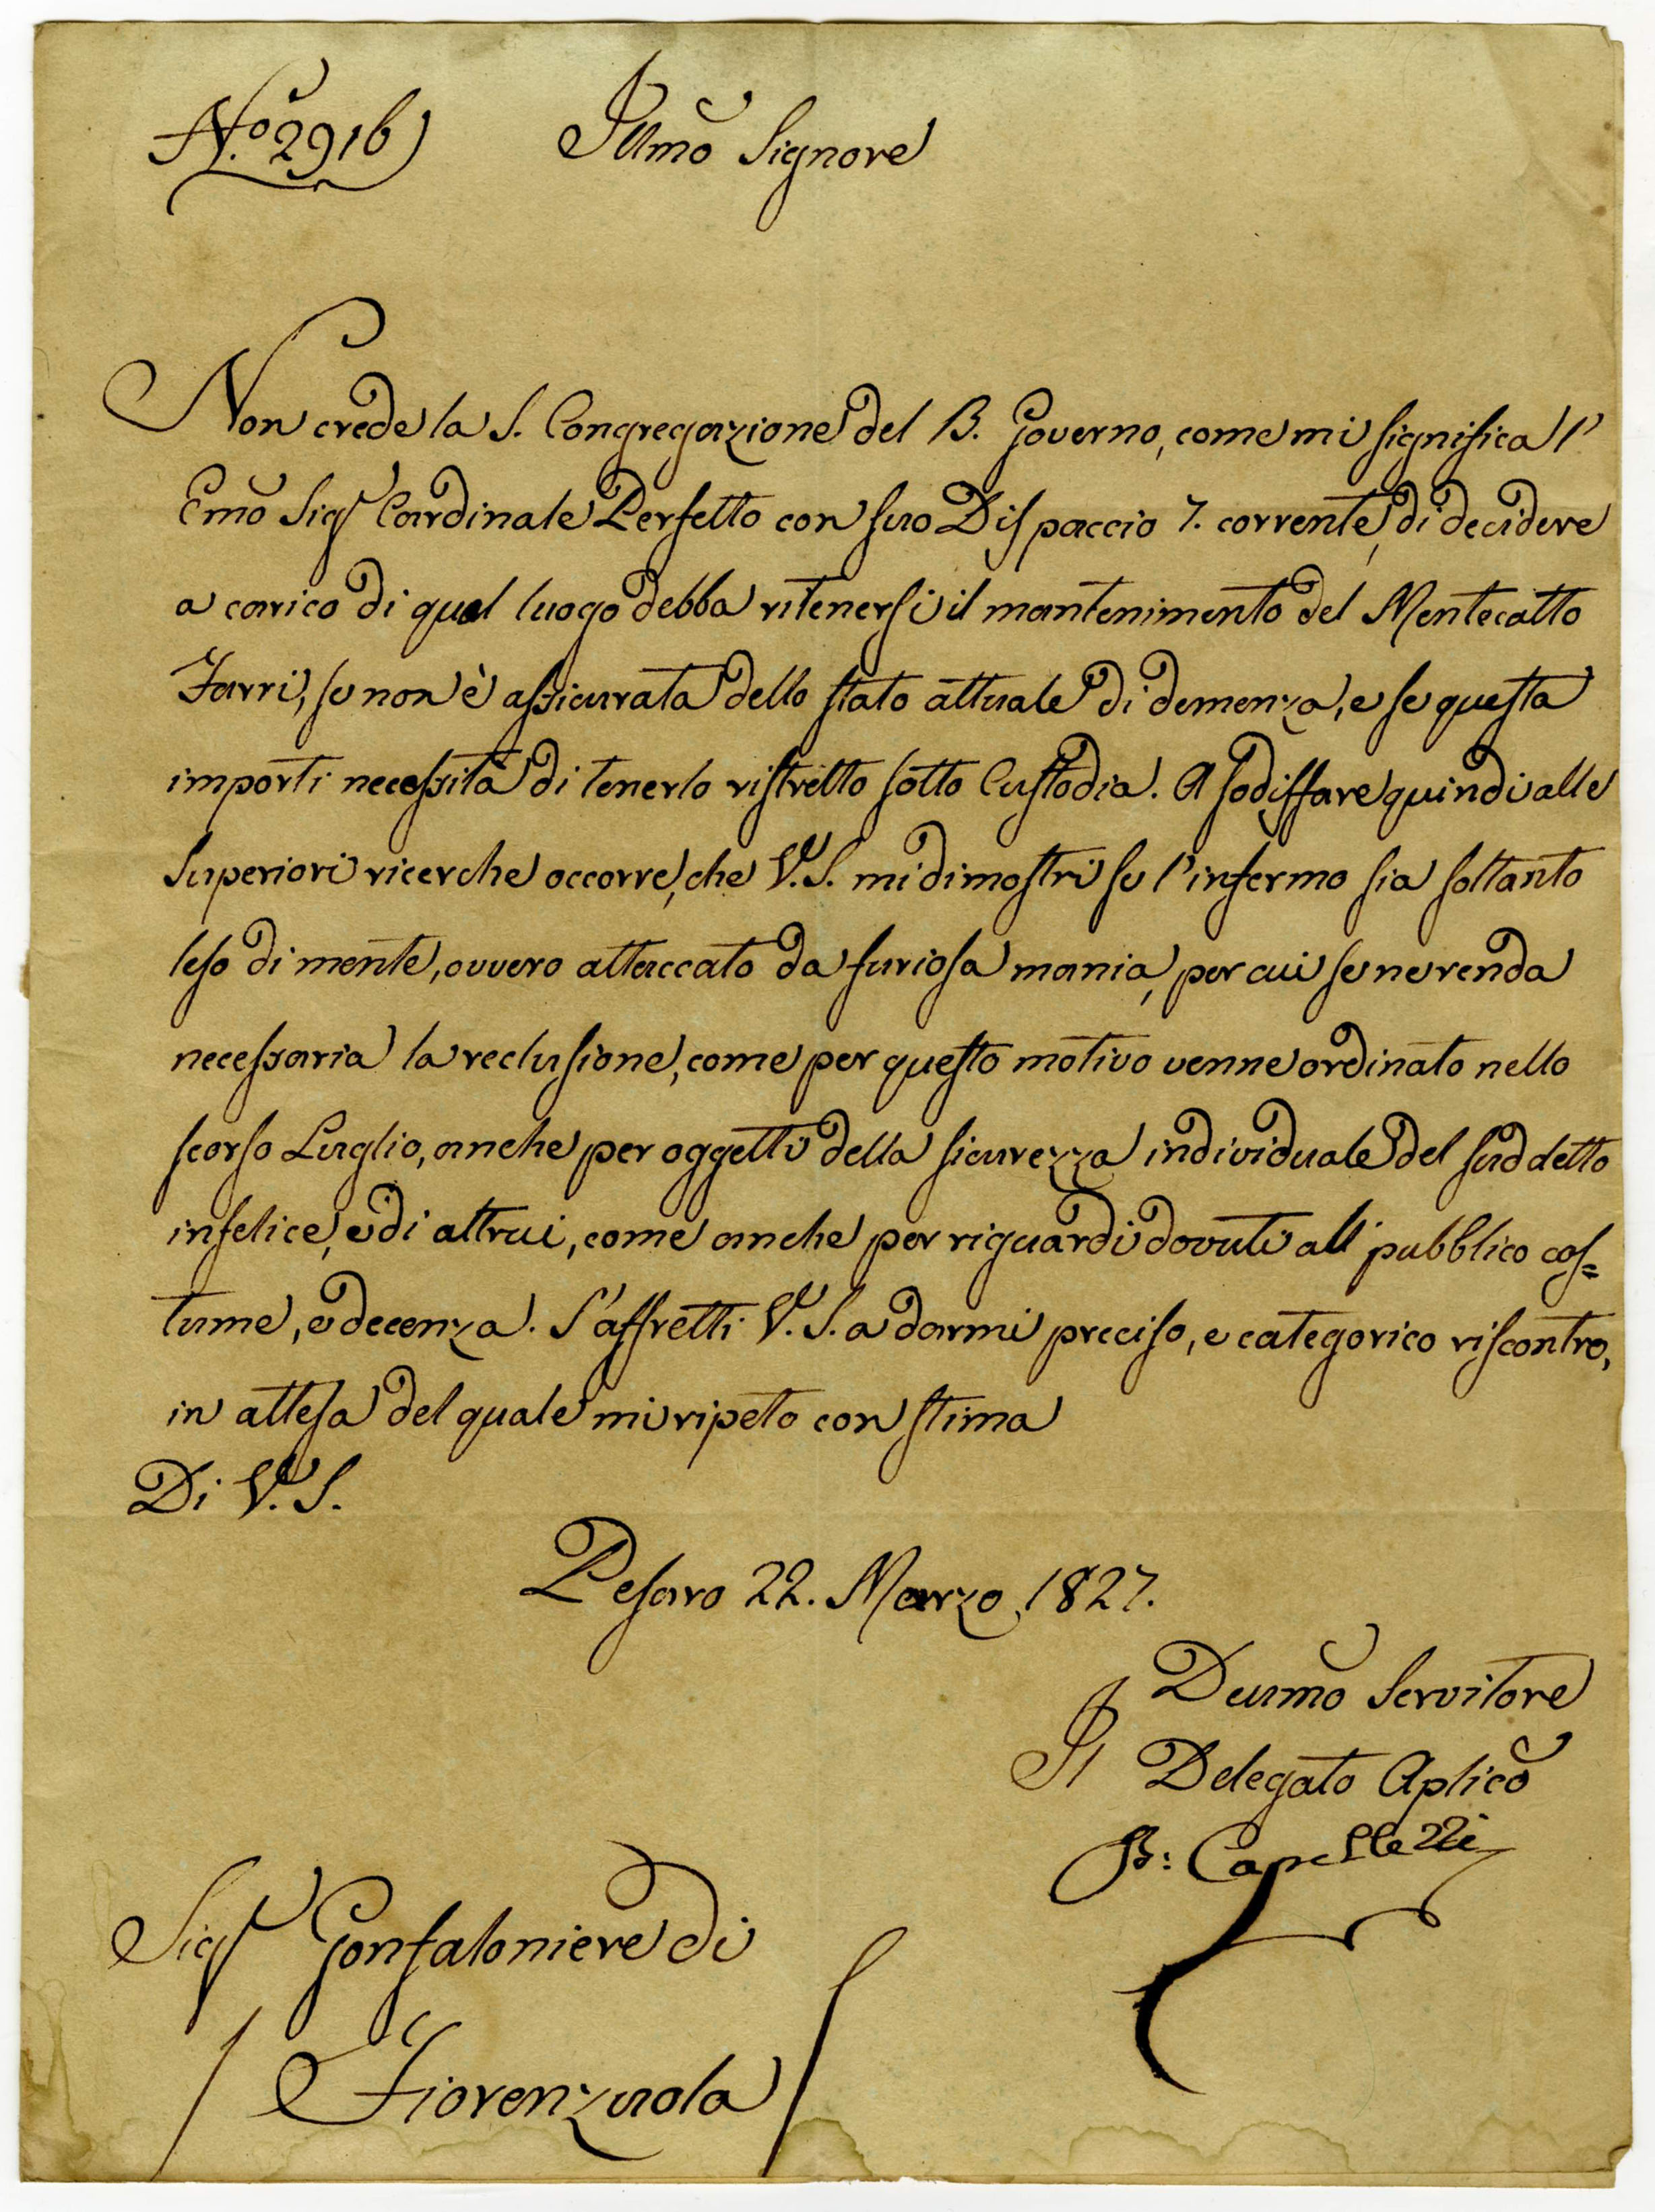 N.º 2916
Illmo Signore
Non crede la S. Congregazione del B. Governo, come mi significa l'
Emo Sigr Cardinale Perfetto con suo Dispaccio 7. corrente, di decidere
a carico di qual luogo debba ritenersi il mantenimento del Mentecatto
Farri, se non è assicurata dello stato attuale di demenza, e se questa
importi necessità di tenerlo ristretto sotto Custodia. A sodisffare quindi alle
Superiori ricerche occorre, che V.S. mi dimostri se l'infermo sia soltanto
leso di mente, ovvero attaccato da furiosa mania, per cui se ne renda
necessaria la reclusione, come per questo motivo venne ordinato nello
scorso Luglio, anche per oggetti della sicurezza individuale del suddetto
infelice, e di altrui, come anche per riguardi dovuti all pubblico cos=
tume, e decenza. S'affretti V.S. a darmi preciso, e categorico riscontro,
in attesa del quale mi ripeto con stima
Di V.S.
Pesaro 22. Marzo 1827.
Devmo Servitore
Il Delegato Aplico
B: Capelletti
Sigr Gonfaloniere di
Fiorenzuola